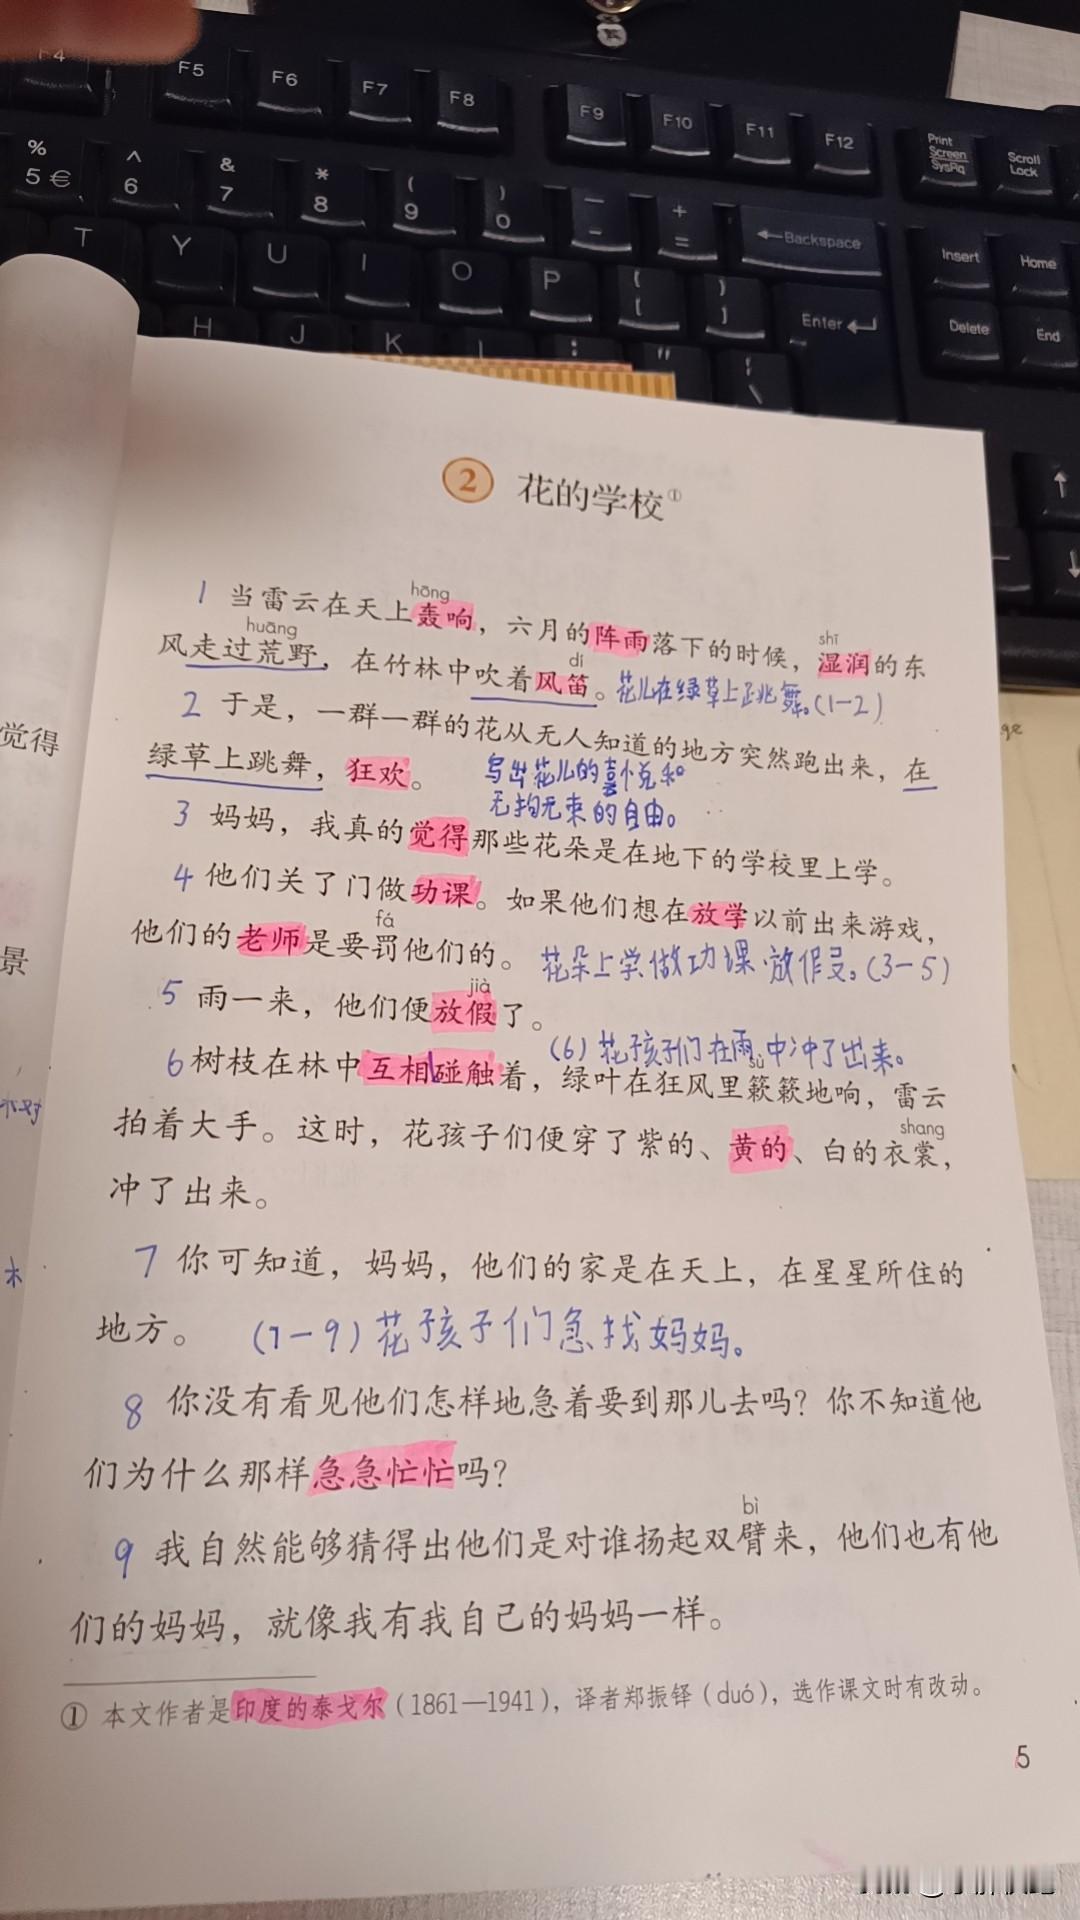 F4 F5 F6 F7 F8 F9 F10 F11 F12 Print Screen SysRq Scroll Lock
% 5 € ^ 6 & 7 * 8 ( 9 ) 0 — - + = ←Backspace Insert Home
T Y U I O P { [ } ] Enter Delete End
H J K L : ; " ' | \
↑
↓
② 花的学校①
hōng
1 当雷云在天上轰响，六月的阵雨落下的时候，湿润的东
huāng shī
风走过荒野，在竹林中吹着风笛。花儿在绿草上跳舞。(1-2)
dí
2 于是，一群一群的花从无人知道的地方突然跑出来，在
绿草上跳舞，狂欢。 写出花儿的喜悦和
无拘无束的自由。
3 妈妈，我真的觉得那些花朵是在地下的学校里上学。
4 他们关了门做功课。如果他们想在放学以前出来游戏，
fá
他们的老师是要罚他们的。花朵上学做功课.放假。(3-5)
jià
5 雨一来，他们便放假了。
(6) 花孩子们在雨中冲了出来。
sù
6 树枝在林中互相碰触着，绿叶在狂风里簌簌地响，雷云
shang
拍着大手。这时，花孩子们便穿了紫的、黄的、白的衣裳，
冲了出来。
7 你可知道，妈妈，他们的家是在天上，在星星所住的
地方。 (7-9) 花孩子们急找妈妈。
8 你没有看见他们怎样地急着要到那儿去吗？你不知道他
们为什么那样急急忙忙吗？
bì
9 我自然能够猜得出他们是对谁扬起双臂来，他们也有他
们的妈妈，就像我有我自己的妈妈一样。
① 本文作者是印度的泰戈尔（1861—1941），译者郑振铎（duó），选作课文时有改动。
5
觉得
景
木